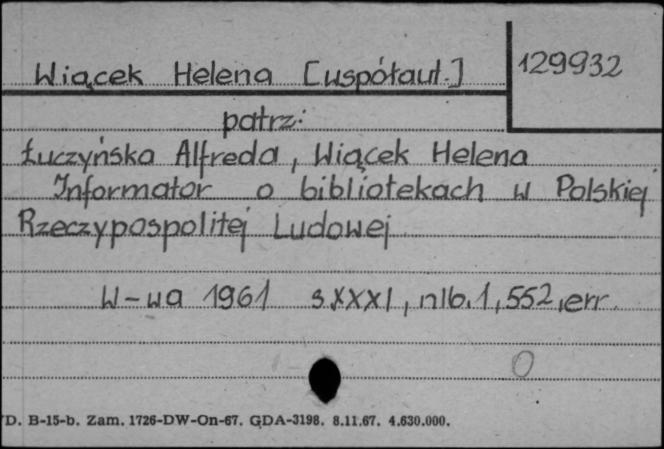 Wiącek Helena [uspółaut.] 129932
patrz:
Łuczyńska Alfreda, Wiącek Helena
Informator o bibliotekach w Polskiej
Rzeczypospolitej Ludowej
W-wa 1961 s.XXXI, nlb.1, 552, err.
0
D. B-15-b. Zam. 1726-DW-On-67. GDA-3198. 8.11.67. 4.630.000.